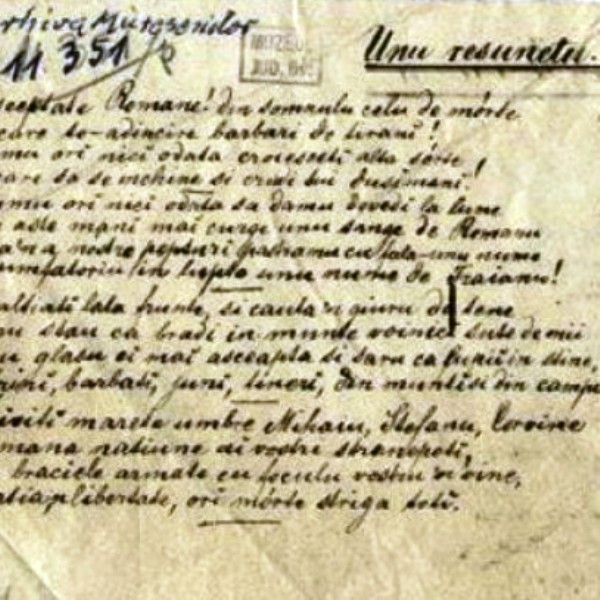 rhiva Muresenilor
11.351
MUZEUL
JUD. BV.
Unu resunetu.
sceptate Romane! din somnulu celu de mórte
care te-adincire barbari de tirani!
mu ori nici odata croiesceti alta sórte
care sa se mchine si crudi lui dusimani!
cumu ori nici odata sa damu dovedi la lume
n aste mani mai curge unu sange de Romanu
a'n a nostre pepturi pastramu cu fala-unu nume
umfatoriu in lupte unu nume de Traianu!
altiati lata frunte, si cauta'n giuru de tene
u stau ca bradi in munte voinici sute de mii
u glasu ei mai asceapta si saru ca lupii in stine,
trini, barbati, juni, tineri, din munti si din campi
iviti marete umbre Mihaiu, Stefanu, Corvine
mana natiune ai vostri stranepoti,
braciele armate cu foculu vostru'n vine,
atia'n libertate, ori mórte striga toti.